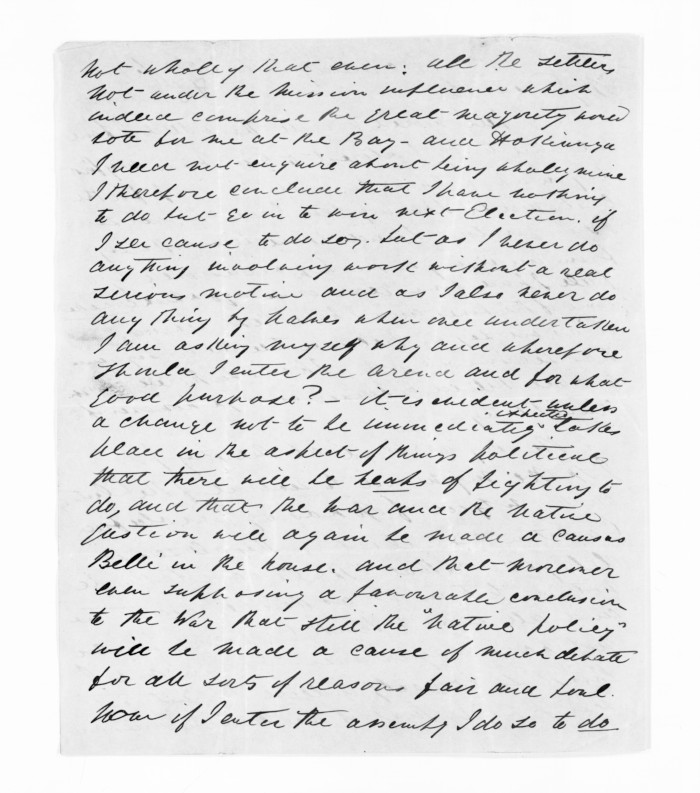 Not wholly that even: all the settlers
not under the mission influence which
indeed comprise the great majority would
vote for me at the Bay - and Hokianga
I need not enquire about being wholly mine
I therefore conclude that I have nothing
to do but go in to win next Election. if
I see cause to do so. but as I never do
anything involving work without a real
serious motive and as I also never do
any thing by halves when once undertaken
I am asking myself why and wherefore
should I enter the arena and for what
good purpose? - it is evident unless
a change not to be immediately expected takes
place in the aspect of things political
that there will be heaps of fighting to
do, and that the war and the Native
Question will again be made a causus
Belli in the house. and that moreover
even supposing a favourable conclusion
to the War that still the "Native policy"
will be made a cause of much debate
for all sorts of reasons fair and foul.
Now if I enter the assembly I do so to do